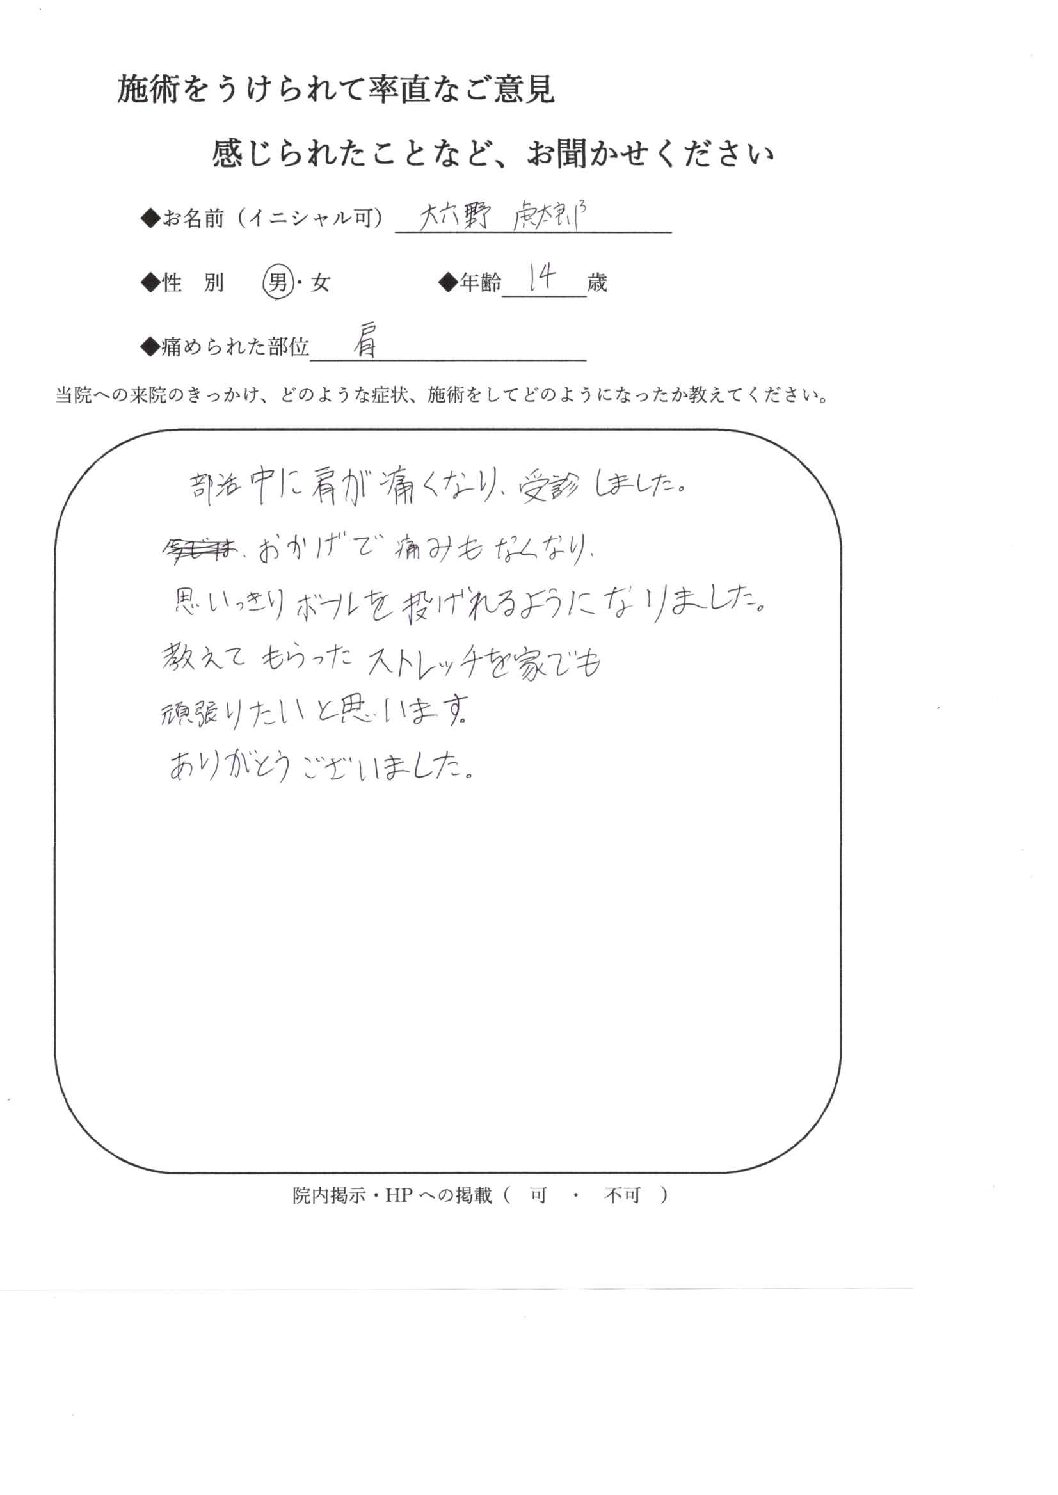 施術をうけられて率直なご意見
感じられたことなど、お聞かせください
◆お名前（イニシャル可） 大六野 虎太郎
◆性 別 男・女 ◆年齢 14 歳
◆痛められた部位 肩
当院への来院のきっかけ、どのような症状、施術をしてどのようになったか教えてください。
部活中に肩が痛くなり、受診しました。
おかげで痛みもなくなり、
思いっきりボールを投げれるようになりました。
教えてもらったストレッチを家でも
頑張りたいと思います。
ありがとうございました。
院内掲示・HPへの掲載（ 可 ・ 不可 ）